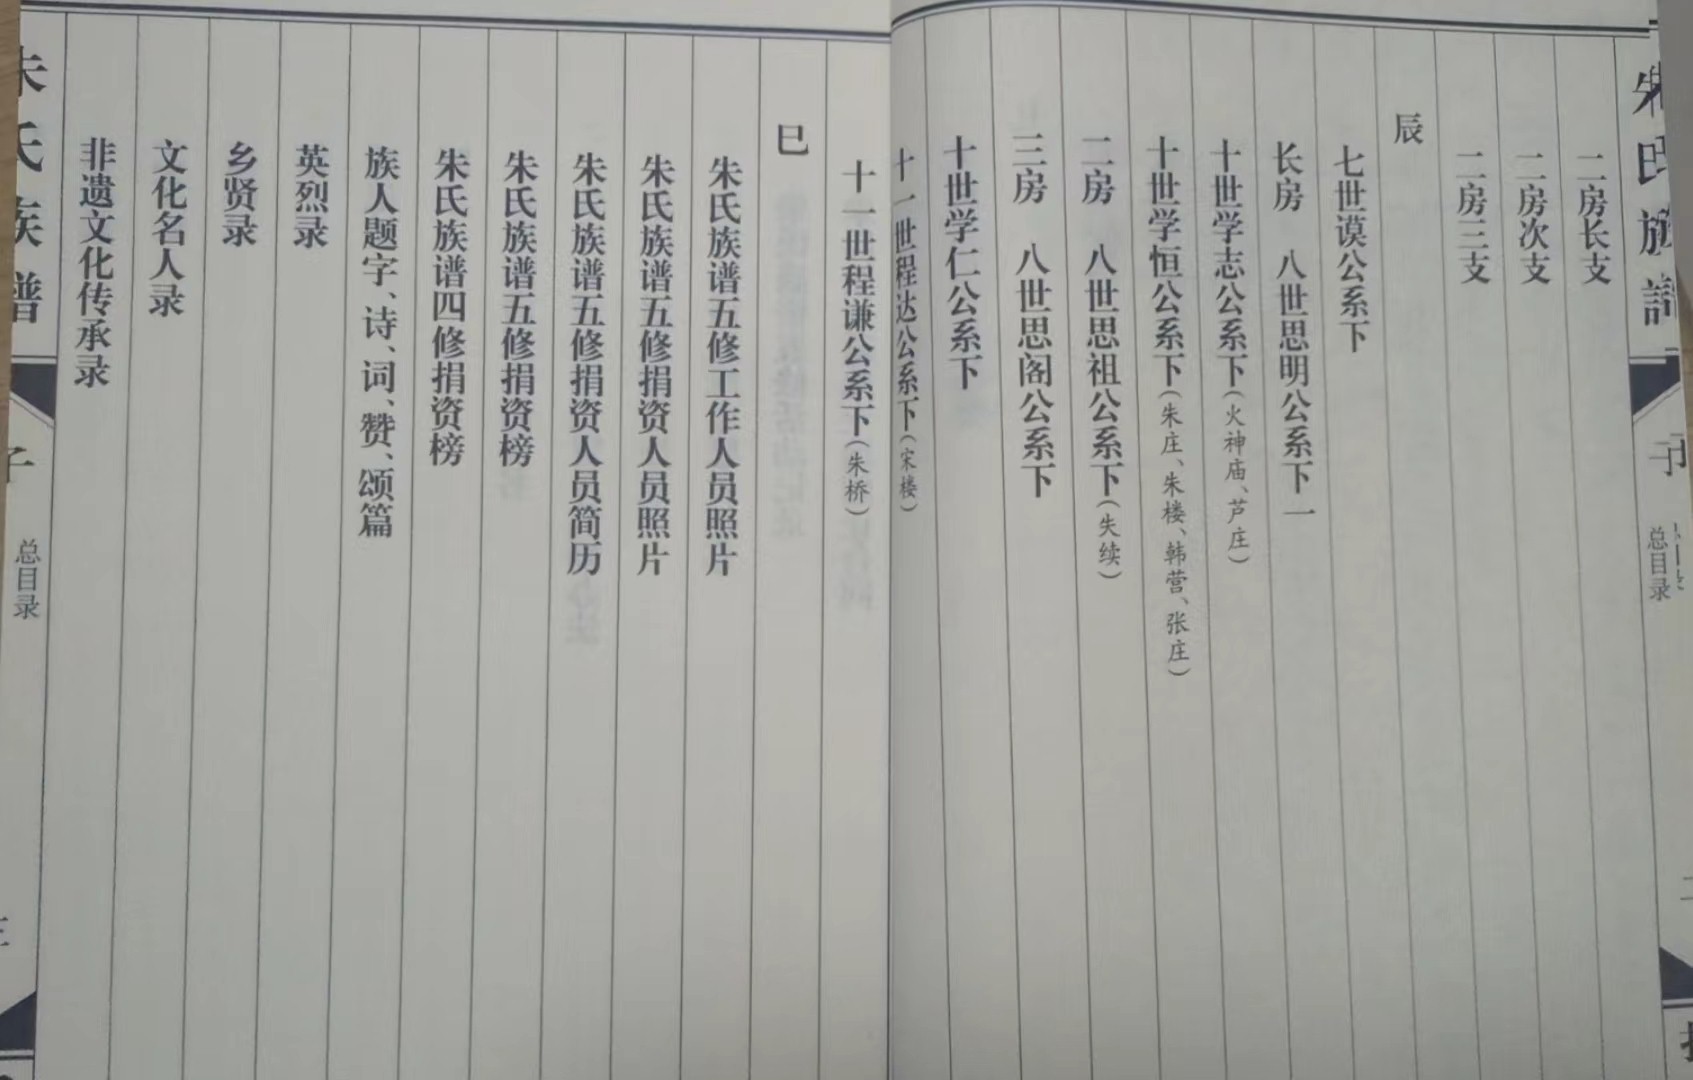 朱氏族譜
子
总目录
二房长支
二房次支
二房三支
辰
七世谟公系下
长房　八世思明公系下一
十世学志公系下（火神庙、芦庄）
十世学恒公系下（朱庄、朱楼、韩营、张庄）
二房　八世思祖公系下（失续）
三房　八世思阁公系下
十世学仁公系下
十一世程达公系下（宋楼）
十一世程谦公系下（朱桥）
巳
朱氏族谱五修工作人员照片
朱氏族谱五修捐资人员照片
朱氏族谱五修捐资人员简历
朱氏族谱五修捐资榜
朱氏族谱四修捐资榜
族人题字、诗、词、赞、颂篇
英烈录
乡贤录
文化名人录
非遗文化传承录
朱氏族譜
子
总目录
三